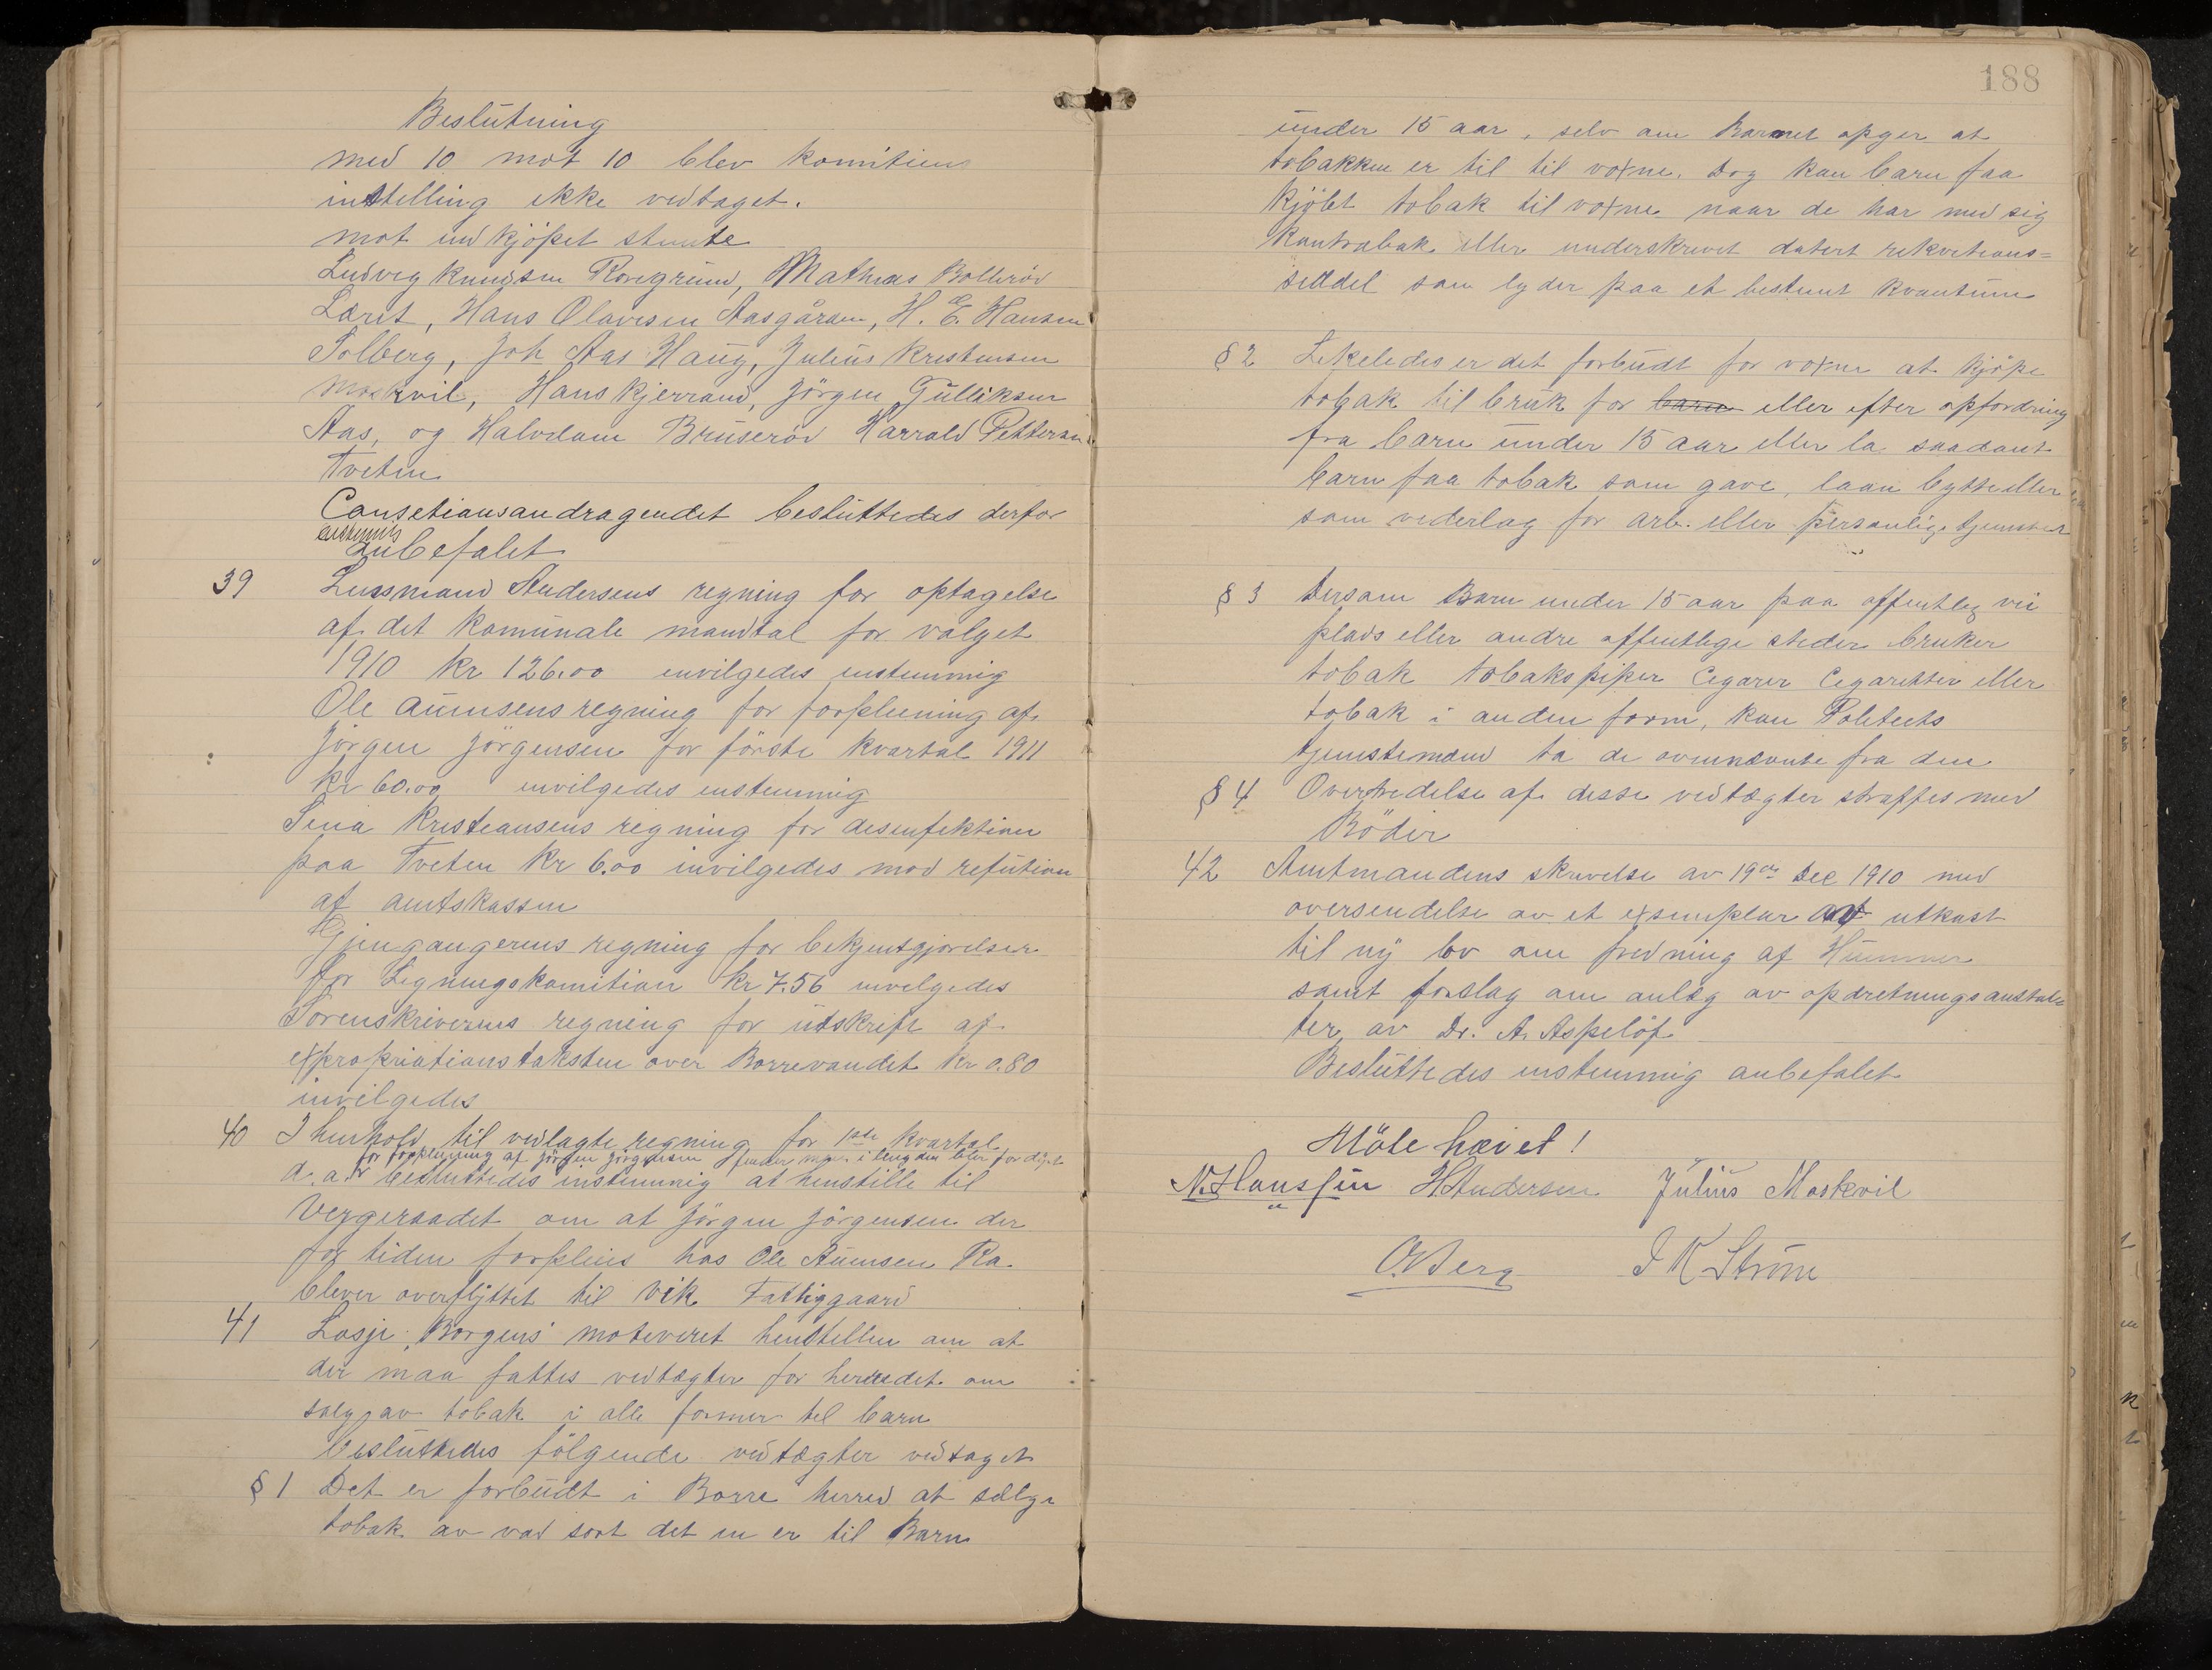 Beslutning
med 10 mot 10 blev komiteens
instelling ikke vedtaget.
mot indkjöpet stemte
Ludvig Knudsen Rosegrund, Mathias Bolleröd
Læret, Hans Olavesen Aasgården, H. E. Hansen
Solberg, Joh Aas Haug, Julius Kristensen
Moskvil, Hans Kjerrand, Jörgen Gulliksen
Aas, og Halvdan Bruseröd Harrald Pettersen
Tveten
Consetionsandragendet besluttedes derfor
enstemig
anbefalet
39 Lensmand Andersens regning for optagelse
af det komunale mandtal for valget
1910 kr 126.00 invilgedes enstemmig
Ole Aumsens regning for forpleining af
Jörgen Jörgensen for förste kvartal 1911
kr 60.00 invilgedes enstemmig
Sina Kristeansens regning for desenfektion
paa Tveten kr 6.00 invilgedes mod refution
af amtskassen
Gjengangerens regning for bekjentgjörelser
for Legningskomition kr 7.56 invelgedes
Sorenskriverens regning for udskrift af
expropriationstaksten over Borrevandet kr 0.80
invilgedes
40 I henhold til vedlagte regning for 1ste kvartal
for forpleining af Jörgen Jörgensen finder man i længden for dyrt
d. a. besluttedes enstemmig at henstille til
Vergeraadet om at Jörgen Jörgensen der
for tiden forpleies hos Ole Aumsen Ra
blever overflyttet til Vik Fattiggaard
41 Losje „Borgens" moteveret henstellen om at
der maa fattes vedtægter for herredet om
salg av tobak i alle former tel barn
besluttedes fölgende vedtægter vedtaget
§ 1 Det er forbudt i Borre herred at sælge
tobak av vad sort det en er til Barn
188
under 15 aar, selv om Barnet opger at
tobakken er til til voxne. Dog kan barn faa
kjöbt tobak til voxne naar de har med sig
Kontrabok eller underskrevet datert rekvetions=
seddel som lyder paa et bestemt kvantum
§ 2 Lekeledes er det forbudt for voxne at kjöpe
tobak til bruk for barn eller efter opfordring
fra barn under 15 aar eller la saadant
barn faa tobak som gave, laan bytte eller
som vederlag for arb. eller personlige tjenester
§ 3 Dersom Barn under 15 aar paa offentleg vei
plads eller andre offentlege steder bruker
tobak tobakspiper Cegarer Cegaretter eller
tobak i anden form, kan Poleteets
tjenestemænd ta de ovennævnte fra dem
§ 4 Overtredelse af desse vedtægter straffes med
Böder
42 Amtmandens skrivelse av 19de Dec 1910 med
oversendelse av et exsemplar av utkast
til ny lov om fredning af Hummer
samt forslag om anlæg av opdretningsanstal=
ter av Dr. A. Appelöf
Besluttedes enstemmig anbefalet
Möte hævet!
N. Hanssen H Andersen Julius Moskvil
O. Berg I K Ström